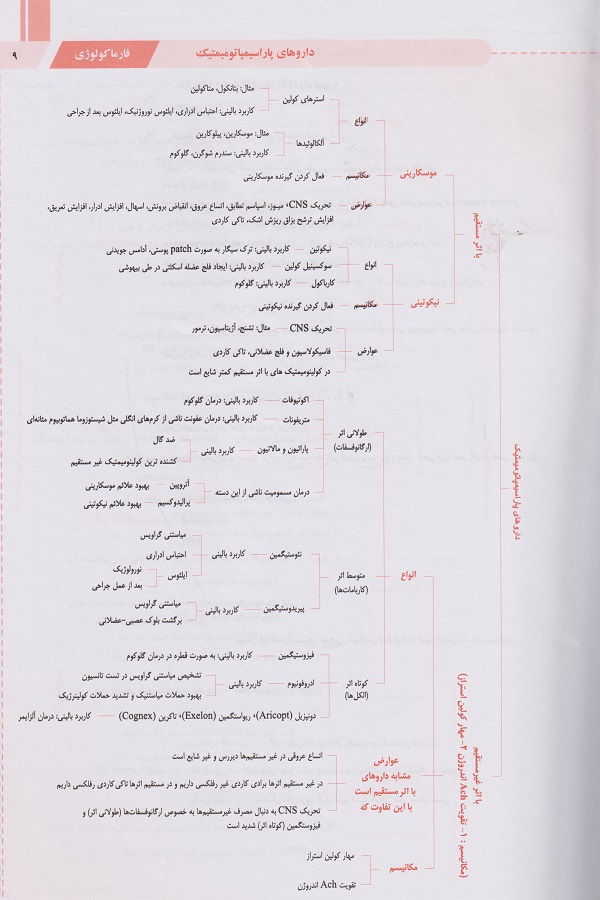 داروهای پاراسیمپاتومیمتیک
فارماکولوژی
۹
داروهای پاراسیمپاتومیمتیک
با اثر مستقیم
موسکارینی
انواع
استرهای کولین
مثال: بتانکول، متاکولین
کاربرد بالینی: احتباس ادراری، ایلئوس نوروژنیک، ایلئوس بعد از جراحی
آلکالوئیدها
مثال: موسکارین، پیلوکارپن
کاربرد بالینی: سندرم شوگرن، گلوکوم
مکانیسم
فعال کردن گیرنده موسکارینی
عوارض
تحریک CNS، میـوز، اسپاسم تطابق، اتساع عروق، انقباض برونش، اسهال، افزایش ادرار، افزایش تعریق،
افزایش ترشح بزاق ریزش اشک، تاکی کاردی
نیکوتینی
انواع
نیکوتین
کاربرد بالینی: ترک سیگار به صورت patch پوستی، آدامس جویدنی
سوکسینیل کولین
کاربرد بالینی: ایجاد فلج عضله اسکلتی در طی بیهوشی
کارباکول
کاربرد بالینی: گلوکوم
مکانیسم
فعال کردن گیرنده نیکوتینی
عوارض
تحریک CNS
مثال: تشنج، آژیتاسیون، ترمور
فاسیکولاسیون و فلج عضلانی، تاکی کاردی
در کولینومیمتیک های با اثر مستقیم کمتر شایع است
با اثر غیرمستقیم
(مکانیسم: ۱- تقویت Ach اندروژن ۲- مهار کولین استراز)
انواع
طولانی اثر
(ارگانوفسفات)
اکوتیوفات
کاربرد بالینی: درمان گلوکوم
متریفونات
کاربرد بالینی: درمان عفونت ناشی از کرم‌های انگلی مثل شیستوزوما هماتوبیوم مثانه‌ای
پاراتیون و مالاتیون
کاربرد بالینی
ضد گال
کشنده ترین کولینومیمتیک غیر مستقیم
درمان مسمومیت ناشی از این دسته
آتروپین
بهبود علائم موسکارینی
پرالیدوکسیم
بهبود علائم نیکوتینی
متوسط اثر
(کاربامات‌ها)
نئوستیگمین
کاربرد بالینی
میاستنی گراویس
احتباس ادراری
ایلئوس
نورولوژیک
بعد از عمل جراحی
پیریدوستیگمین
کاربرد بالینی
میاستنی گراویس
برگشت بلوک عصبی-عضلانی
کوتاه اثر
(الکل‌ها)
فیزوستیگمین
کاربرد بالینی: به صورت قطره در درمان گلوکوم
ادروفونیوم
کاربرد بالینی
تشخیص میاستنی گراویس در تست تانسیون
بهبود حملات میاستنیک و تشدید حملات کولینرژیک
دونپزیل (Aricopt)، ریواستگمین (Exelon)، تاکرین (Cognex)
کاربرد بالینی: درمان آلزایمر
عوارض
مشابه داروهای
با اثر مستقیم است
با این تفاوت که
اتساع عروقی در غیر مستقیم‌ها دیررس و غیر شایع است
در غیر مستقیم اثرها برادی کاردی غیر رفلکسی داریم و در مستقیم اثرها تاکی‌کاردی رفلکسی داریم
تحریک CNS به دنبال مصرف غیرمستقیم‌ها به خصوص ارگانوفسفات‌ها (طولانی اثر) و
فیزوستگمین (کوتاه اثر) شدید است
مکانیسم
مهار کولین استراز
تقویت Ach اندروژن